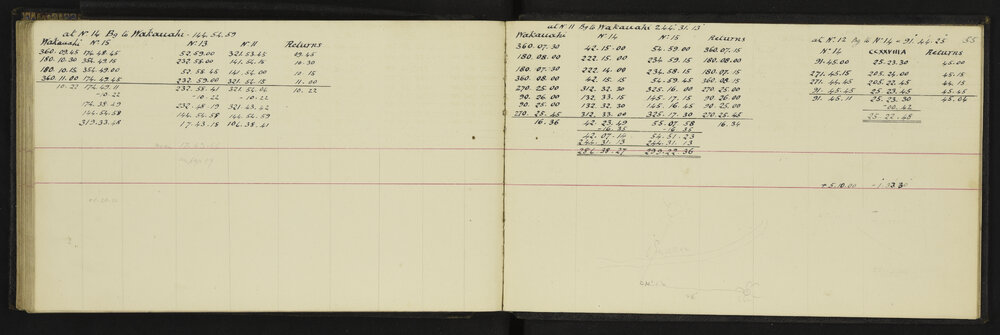 at No 14 Bg to Wakauahi - 144.54.59
Wakauahi No 15 No 13 No 11 Returns
360.09.45 174.48.45 52.59.00 321.53.45 09.45
180.10.30 354.49.15 232.58.00 141.54.15 10.30
180.10.15 354.49.00 52.58.45 141.54.00 10.15
360.11.00 174.49.45 232.59.00 321.54.15 11.00
10.22 174.49.11 232.58.41 321.54.04 10.22
-10.22 -10.22 -10.22
174.38.49 232.48.19 321.43.42
144.54.58 144.54.58 144.54.59
319.33.48 17.43.15 106.38.41
at No 11 Bg to Wakauahi 244.31.13
Wakauahi No 14 No 15 Returns
360.07.30 42.15.00 54.59.00 360.07.15
180.08.00 222.15.00 234.59.15 180.08.00
180.07.30 222.14.00 234.58.15 180.07.15
360.08.00 42.15.15 54.59.45 360.08.15
270.25.00 312.32.30 325.16.00 270.25.00
90.26.00 132.33.15 145.17.15 90.26.00
90.25.00 132.32.30 145.16.45 90.25.00
270.25.45 312.33.00 325.17.30 270.25.45
16.36 42.23.49 55.07.58 16.34
-16.35 -16.35
42.07.14 54.51.23
244.31.13 244.31.13
286.38.27 299.22.36
55
at No 12 Bg to No 14 = 91.44.25
No 14 CCXXVIIIA Returns
91.45.00 25.23.30 45.00
271.45.15 205.24.00 45.15
271.44.45 205.22.45 44.15
91.45.45 25.23.45 45.45
91.45.11 25.23.30 45.04
-00.42
25.22.48
+5.10.00 -1.33.30